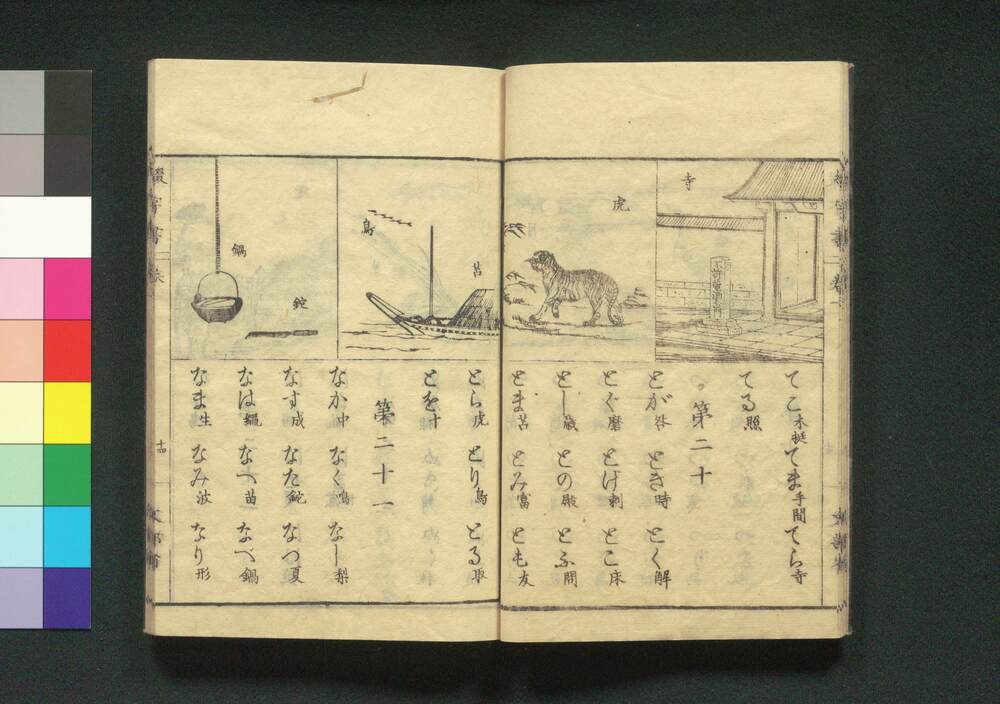 寺
虎
苫
鳥
鍋
鉈
てこ 木梃 てま 手間 てら 寺
てる 照
第二十
とが 咎 とき 時 とく 解
とぐ 磨 とげ 刺 とこ 床
とし 歳 との 殿 とふ 問
とま 苫 とみ 富 とも 友
とら 虎 とり 鳥 とる 取
とを 十
第二十一
なか 中 なく 鳴 なし 梨
なす 成 なた 鉈 なつ 夏
なは 繩 なへ 苗 なべ 鍋
なま 生 なみ 波 なり 形
十四